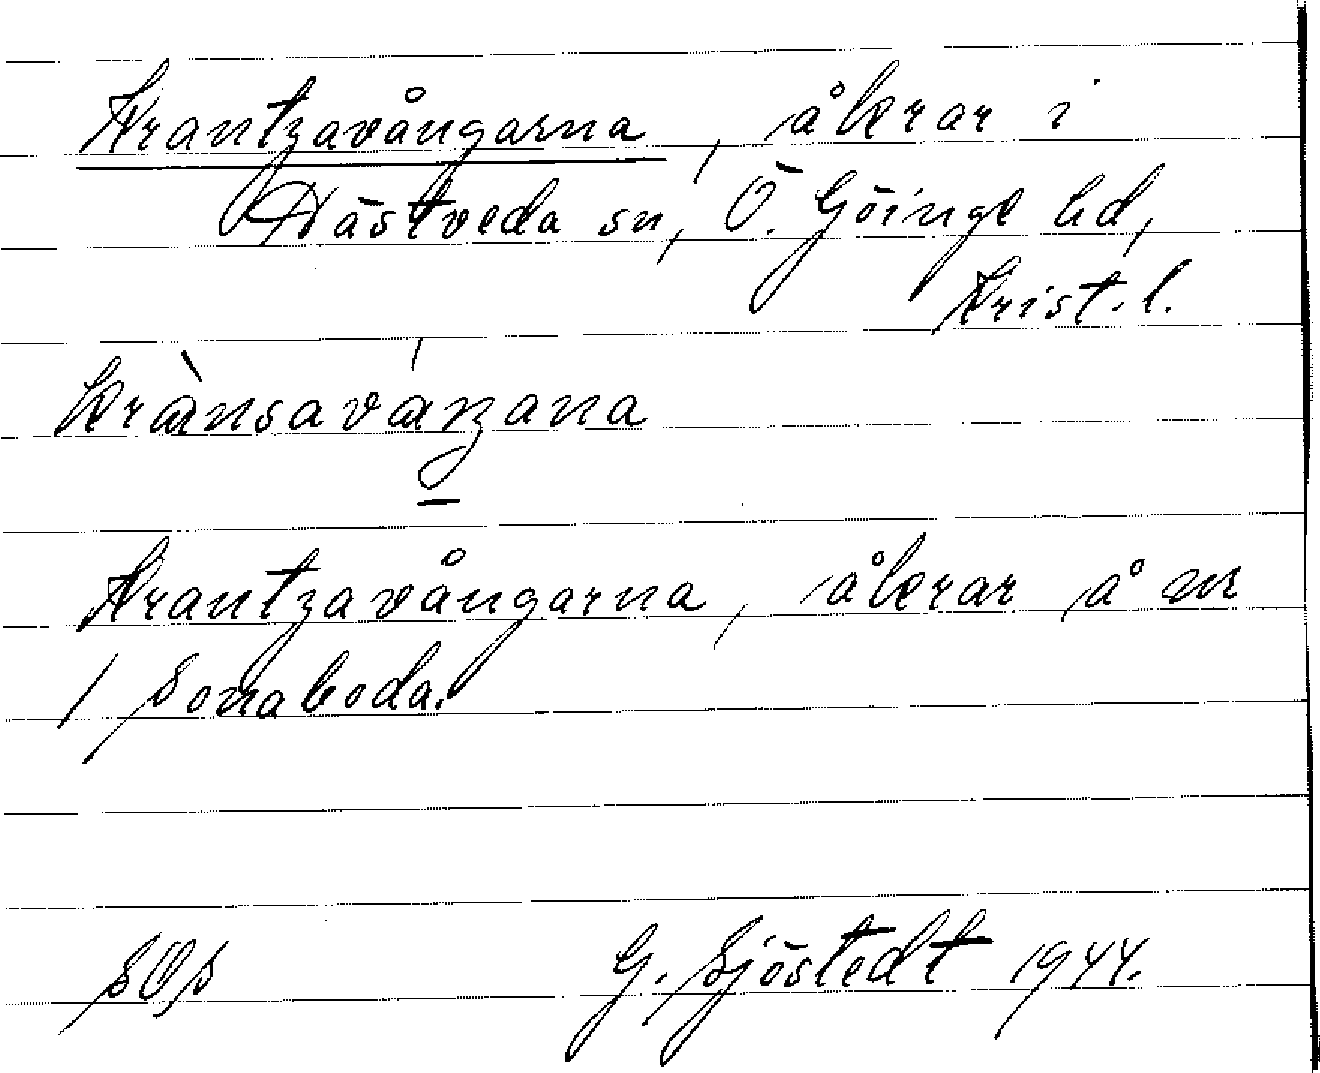 Krantzavångarna, åkrar i
Hästveda sn, Ö. Göinge hd,
Krist. l.
krànsaváŋana
Krantzavångarna, åkrar å nr
1 Sonaboda.
G. Sjöstedt 1944.